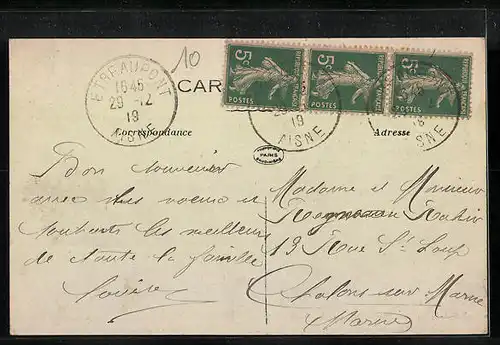 10
ETRÉAUPONT
15 45
29 -12
19
AISNE
CAR
5c
POSTES
5c
POSTES
5c
POSTES
19
AISNE
Correspondance
Adresse
PARIS
Bon souvenir
avec mes voeux et
souhaits les meilleurs
de toute la famille
Louise
Madame et Monsieur
19 Rue St Loup
Chalons sur Marne
Marne